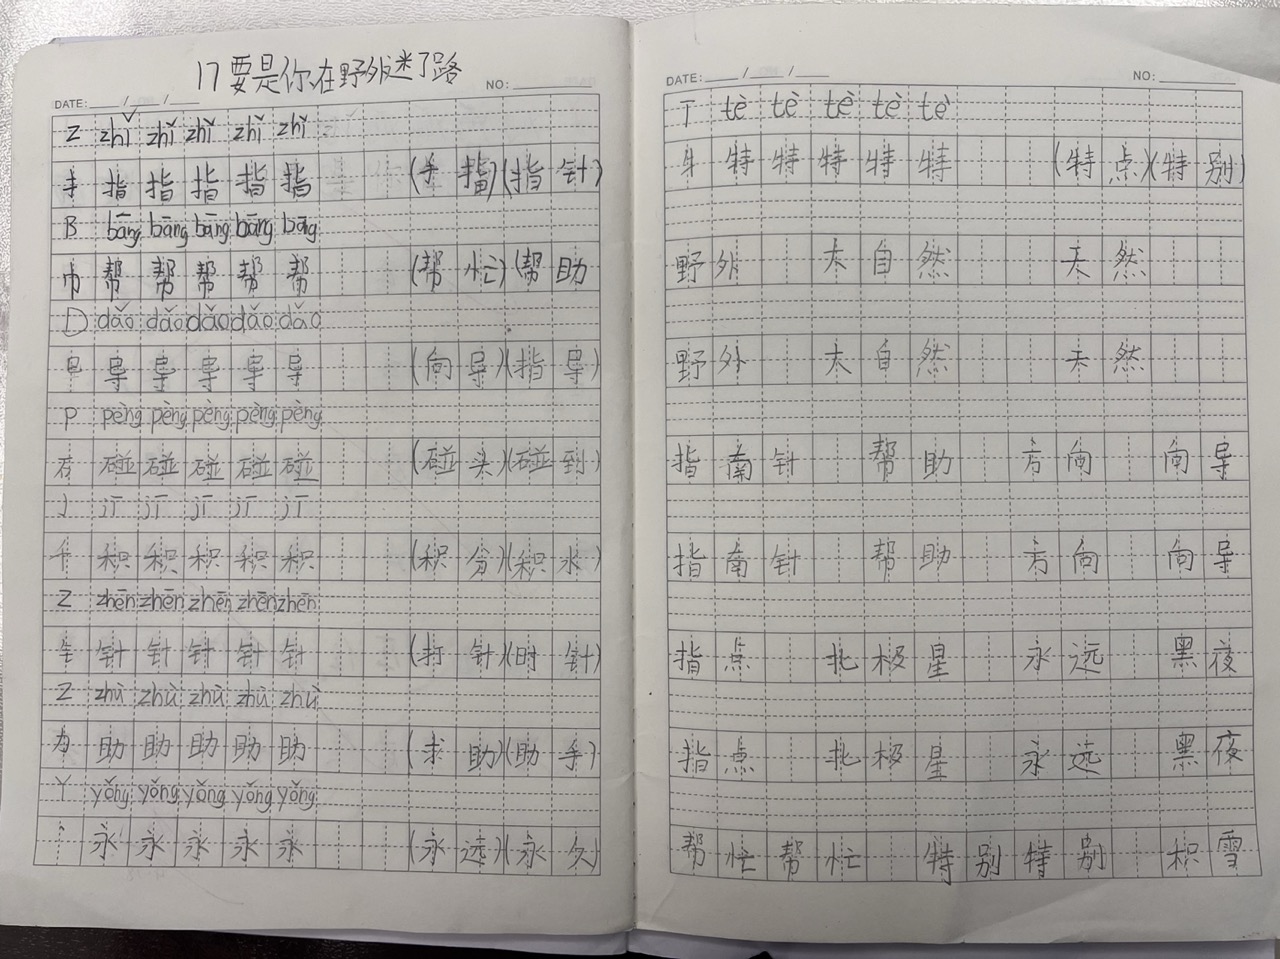 17要是你在野外迷了路
DATE: ___/___/___ NO: ___
Z zhǐ zhǐ zhǐ zhǐ zhǐ
扌 指 指 指 指 指 (手指)(指针)
B bāng bāng bāng bāng bāng
巾 帮 帮 帮 帮 帮 (帮忙)(帮助
D dǎo dǎo dǎo dǎo dǎo
导 导 导 导 导 (向导)(指导)
P pèng pèng pèng pèng pèng
石 碰 碰 碰 碰 碰 (碰头)(碰到)
J jī jī jī jī jī
禾 积 积 积 积 积 (积分)(积水)
Z zhēn zhēn zhēn zhēn zhēn
钅 针 针 针 针 针 (打针)(时针)
Z zhù zhù zhù zhù zhù
力 助 助 助 助 助 (求助)(助手)
Y yǒng yǒng yǒng yǒng yǒng
丶 永 永 永 永 永 (永远)(永久)
DATE: ___/___/___ NO: ___
T tè tè tè tè tè
牜 特 特 特 特 特 (特点)(特别)
野外 大自然 天然
野外 大自然 天然
指南针 帮助 方向 向导
指南针 帮助 方向 向导
指点 北极星 永远 黑夜
指点 北极星 永远 黑夜
帮忙帮忙 特别特别 积雪